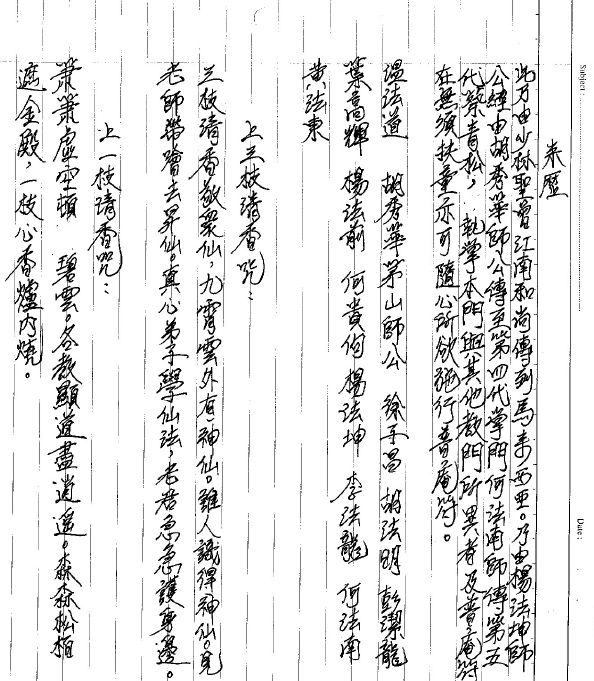 Subject:
Date:
來歷
此乃由少林聖僧江南和尚傳到馬來西亞。乃由楊法坤師
公經由胡秀華師公傳至第四代掌門何法南師傅第五
代葉青松，執掌本門與其他教門所異者及普庵符
在無須扶童亦可隨心所欲施行普庵符。
温法道 胡秀華茅山師公 徐子昌 胡法明 彭潔龍
葉高輝 楊法前 何貴伯 楊法坤 李法龍 何法南
黄法東
上三枝清香咒：
三枝清香敬衆仙，九霄雲外有神仙。誰人識得神仙。見
老師帶唸去昇仙。真心弟子學仙法，老君急急護身邊。
上一枝清香咒：
蕭蕭虛空頓 碧雲。各教顯道盡逍遥。森森松栢
遮金殿，一枝心香爐內燒。